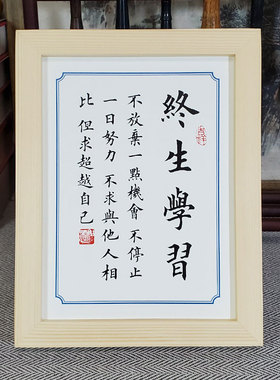 終生學習
不放棄一點機會 不停止
一日努力 不求與他人相
比 但求超越自己